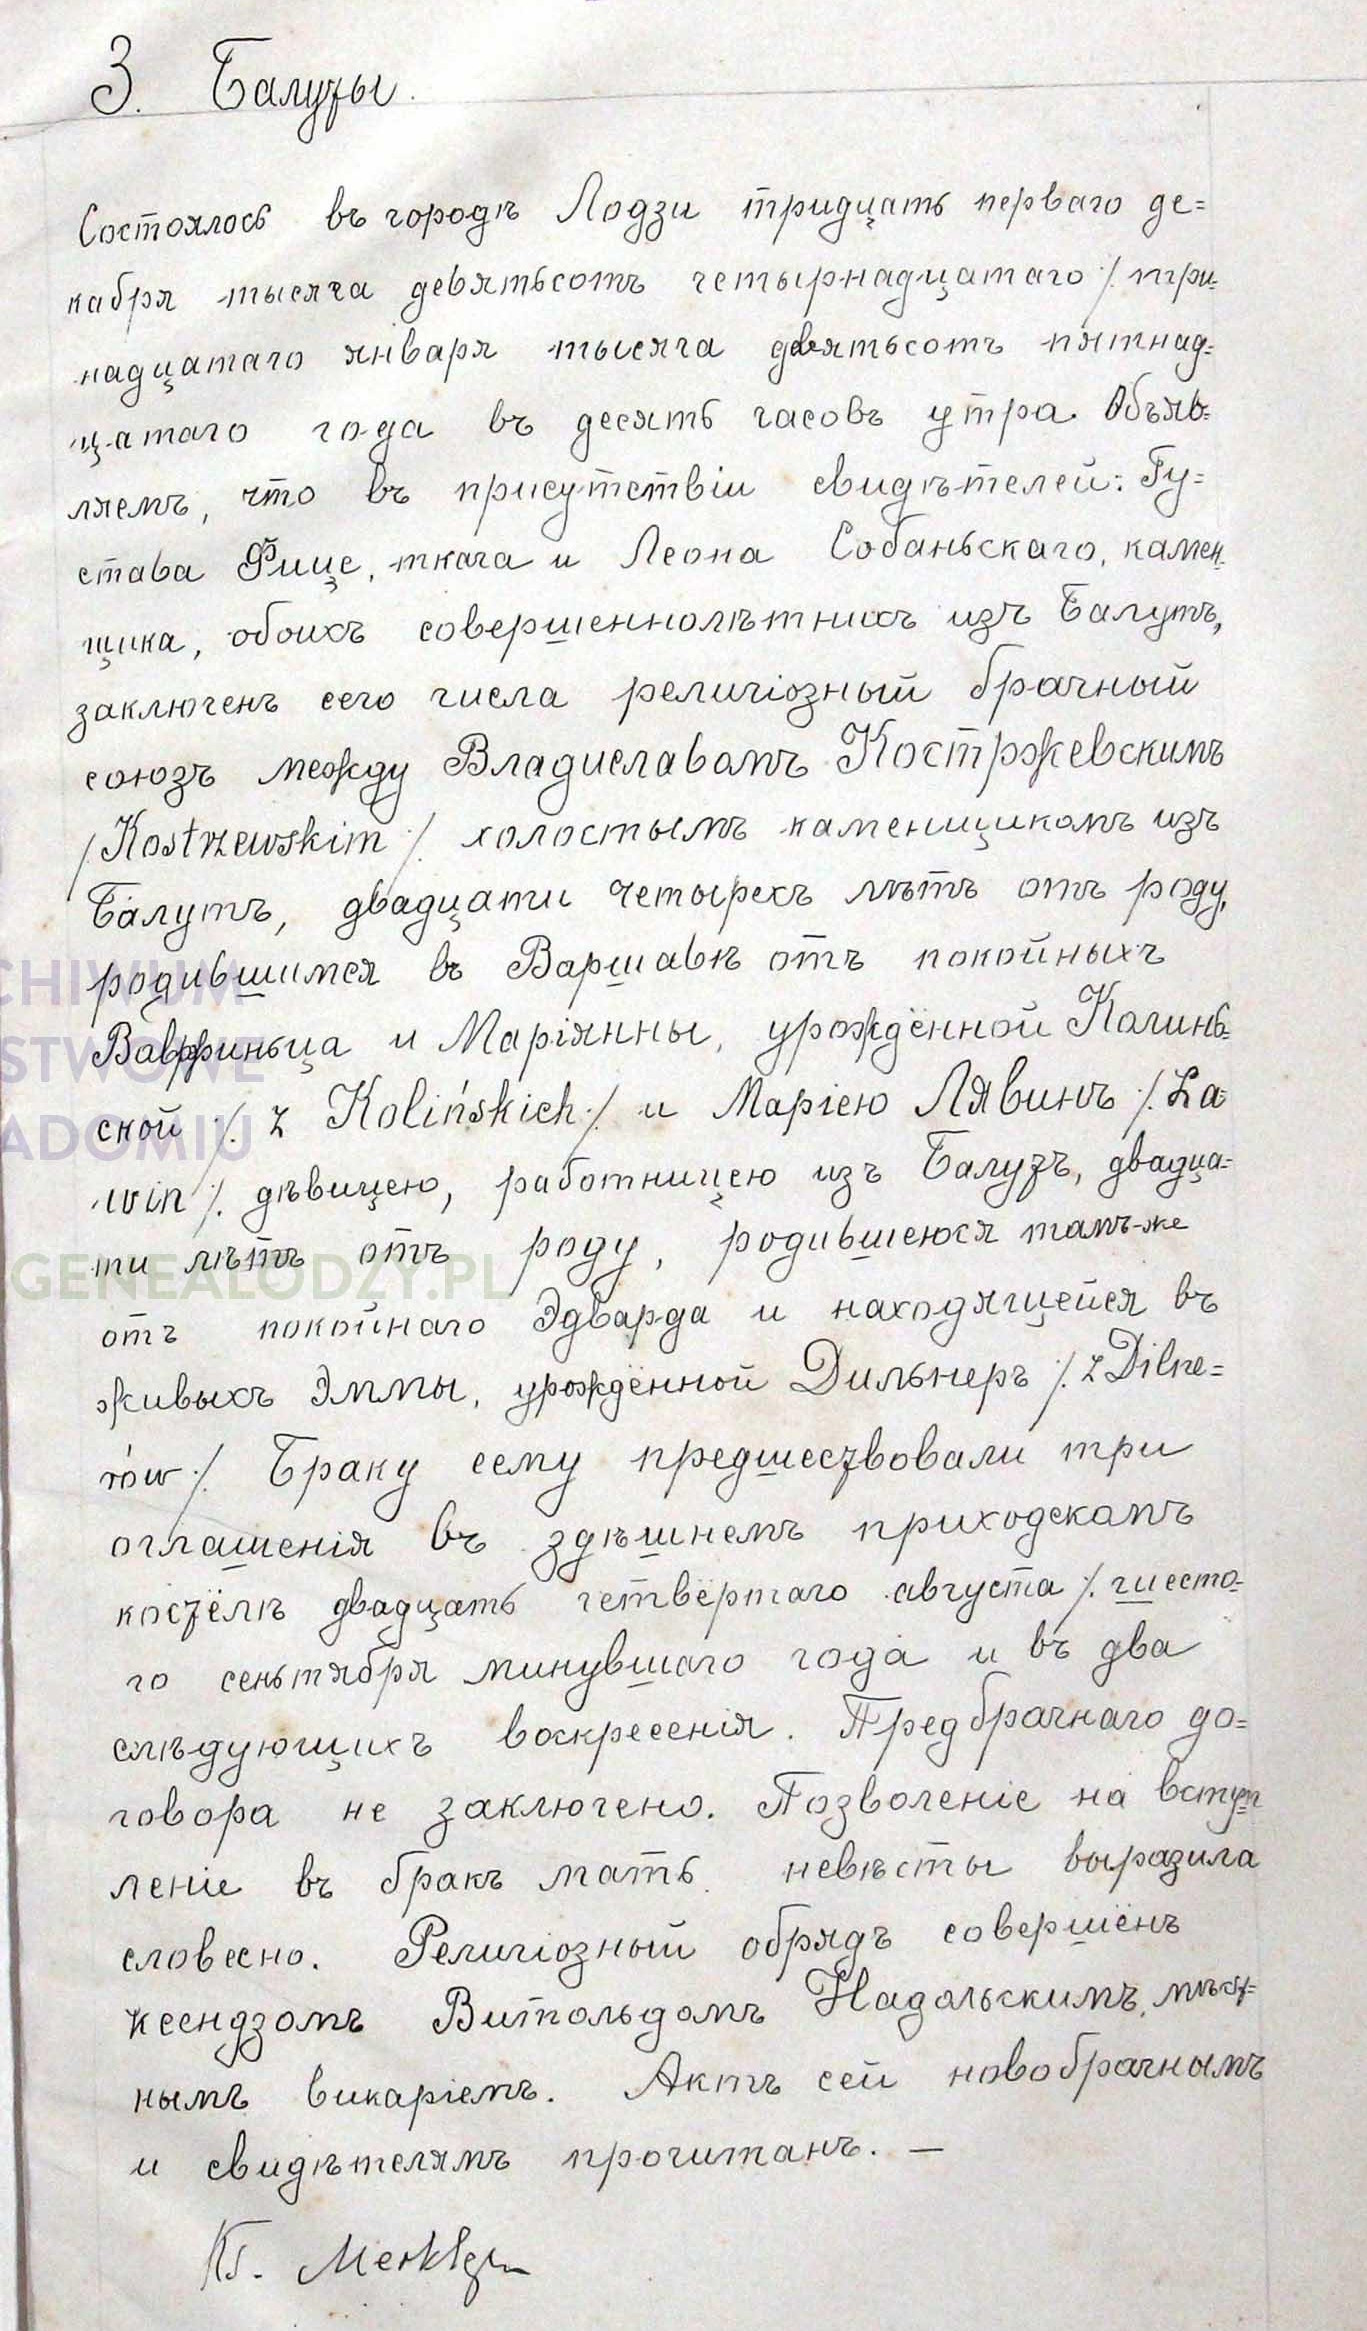 3. Балуты.
Состоялось въ городѣ Лодзи тридцать перваго де=
кабря тысяча девятьсотъ четырнадцатаго /. три-
надцатаго января тысяча девятьсотъ пятнад=
цатаго года въ десять часовъ утра. Объяв-
ляемъ, что въ присутствіи свидѣтелей: Гу=
става Фице, ткача и Леона Собаньскаго, камен-
щика, обоихъ совершеннолѣтнихъ изъ Балутъ,
заключенъ сего числа религіозный брачный
союзъ между Владиславомъ Костржевскимъ
/. Kostrzewskim /. холостымъ каменщикомъ изъ
Балутъ, двадцати четырехъ лѣтъ отъ роду,
родившимся въ Варшавѣ отъ покойныхъ
Вавржиньца и Маріянны, урождённой Колинь-
ской /. z Kolińskich /. и Маріею Лявинъ /. La-
win /. дѣвицею, работницею изъ Балутъ, двадца-
ти лѣтъ отъ роду, родившеюся тамъ-же
отъ покойнаго Эдварда и находящейся въ
живыхъ Эммы, урождённой Дильнеръ /. z Dilne=
rów /. Браку сему предшествовали три
оглашенія въ здѣшнемъ приходскамъ
костёлѣ двадцать четвёртаго августа /. шесто-
го сеньтября минувшаго года и въ два
слѣдующихъ воскресенія. Предбрачнаго до=
говора не заключено. Позволеніе на вступ
леніе въ бракъ мать невѣсты выразила
словесно. Религіозный обрядъ совершёнъ
ксендзомъ Витольдомъ Надольскимъ, мѣст=
нымъ викаріемъ. Актъ сей новобрачнымъ
и свидѣтелямъ прочитанъ. —
CHIWUM
STWOWE
ADOMIU
GENEALODZY.PL